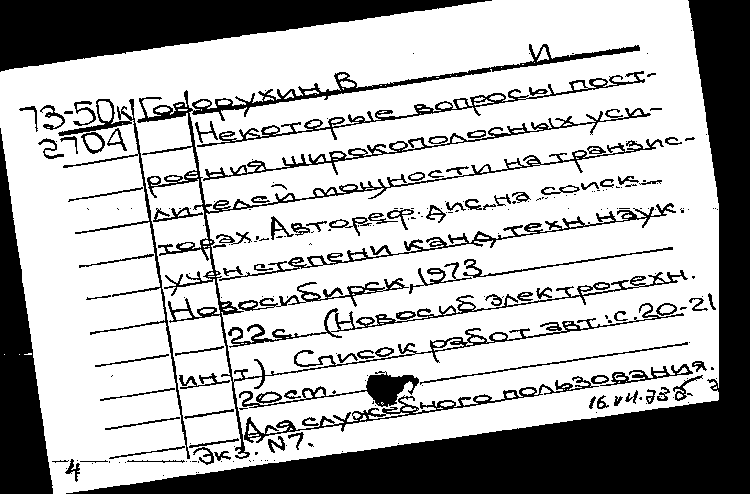 И
73-50к Говорухин, В
2704 Некоторые вопросы пост-
роения широкополосных уси-
лителей мощности на транзис-
торах. Автореф. дис. на соиск.
учен. степени канд. техн. наук.
Новосибирск, 1973
22с. (Новосиб электротехн.
ин-т). Список работ авт.: с.20-21
20 cm.
Для служебного пользования.
Экз. N7.
4